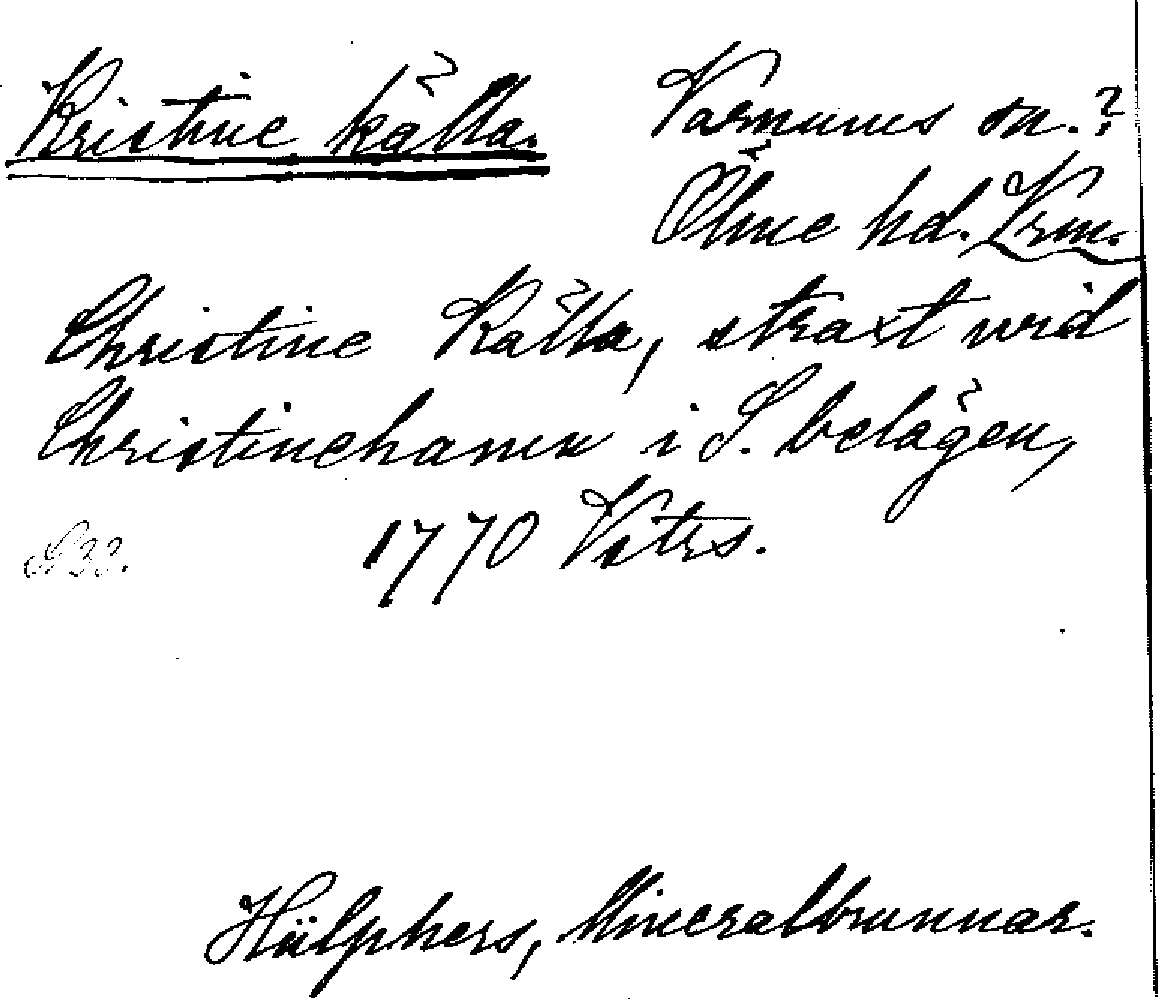 Kristine källa. Varnums sn.?
Ölme hd. Vrm.
Christine Källa, straxt wid
Christinehamn i S. belägen,
S 33. 1770 Vitrs.
Hülphers, Mineralbrunnar.